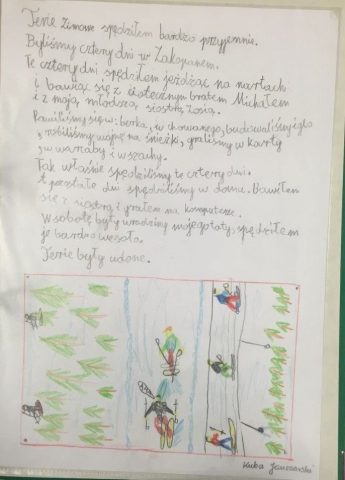 Ferie zimowe spędziłem bardzo przyjemnie.
Byliśmy cztery dni w Zakopanem.
Te cztery dni spędziłem jeżdżąc na nartach
i bawiąc się z ciotecznym bratem Michałem
i z moją młodszą siostrą Zosią.
Bawiliśmy się w: berka, w chowanego, budowaliśmy igło
, robiliśmy wojnę na śnieżki, graliśmy w karty
, w warcaby i w szachy.
Tak właśnie spędziliśmy te cztery dni.
A pozstałe dni spędziliśmy w domu. Bawiłem
się z siostrą i grałem na komputerze.
W sobotę były urodziny mojego taty, spędziłem
je bardzo wesoło.
Ferie były udane.
Kuba